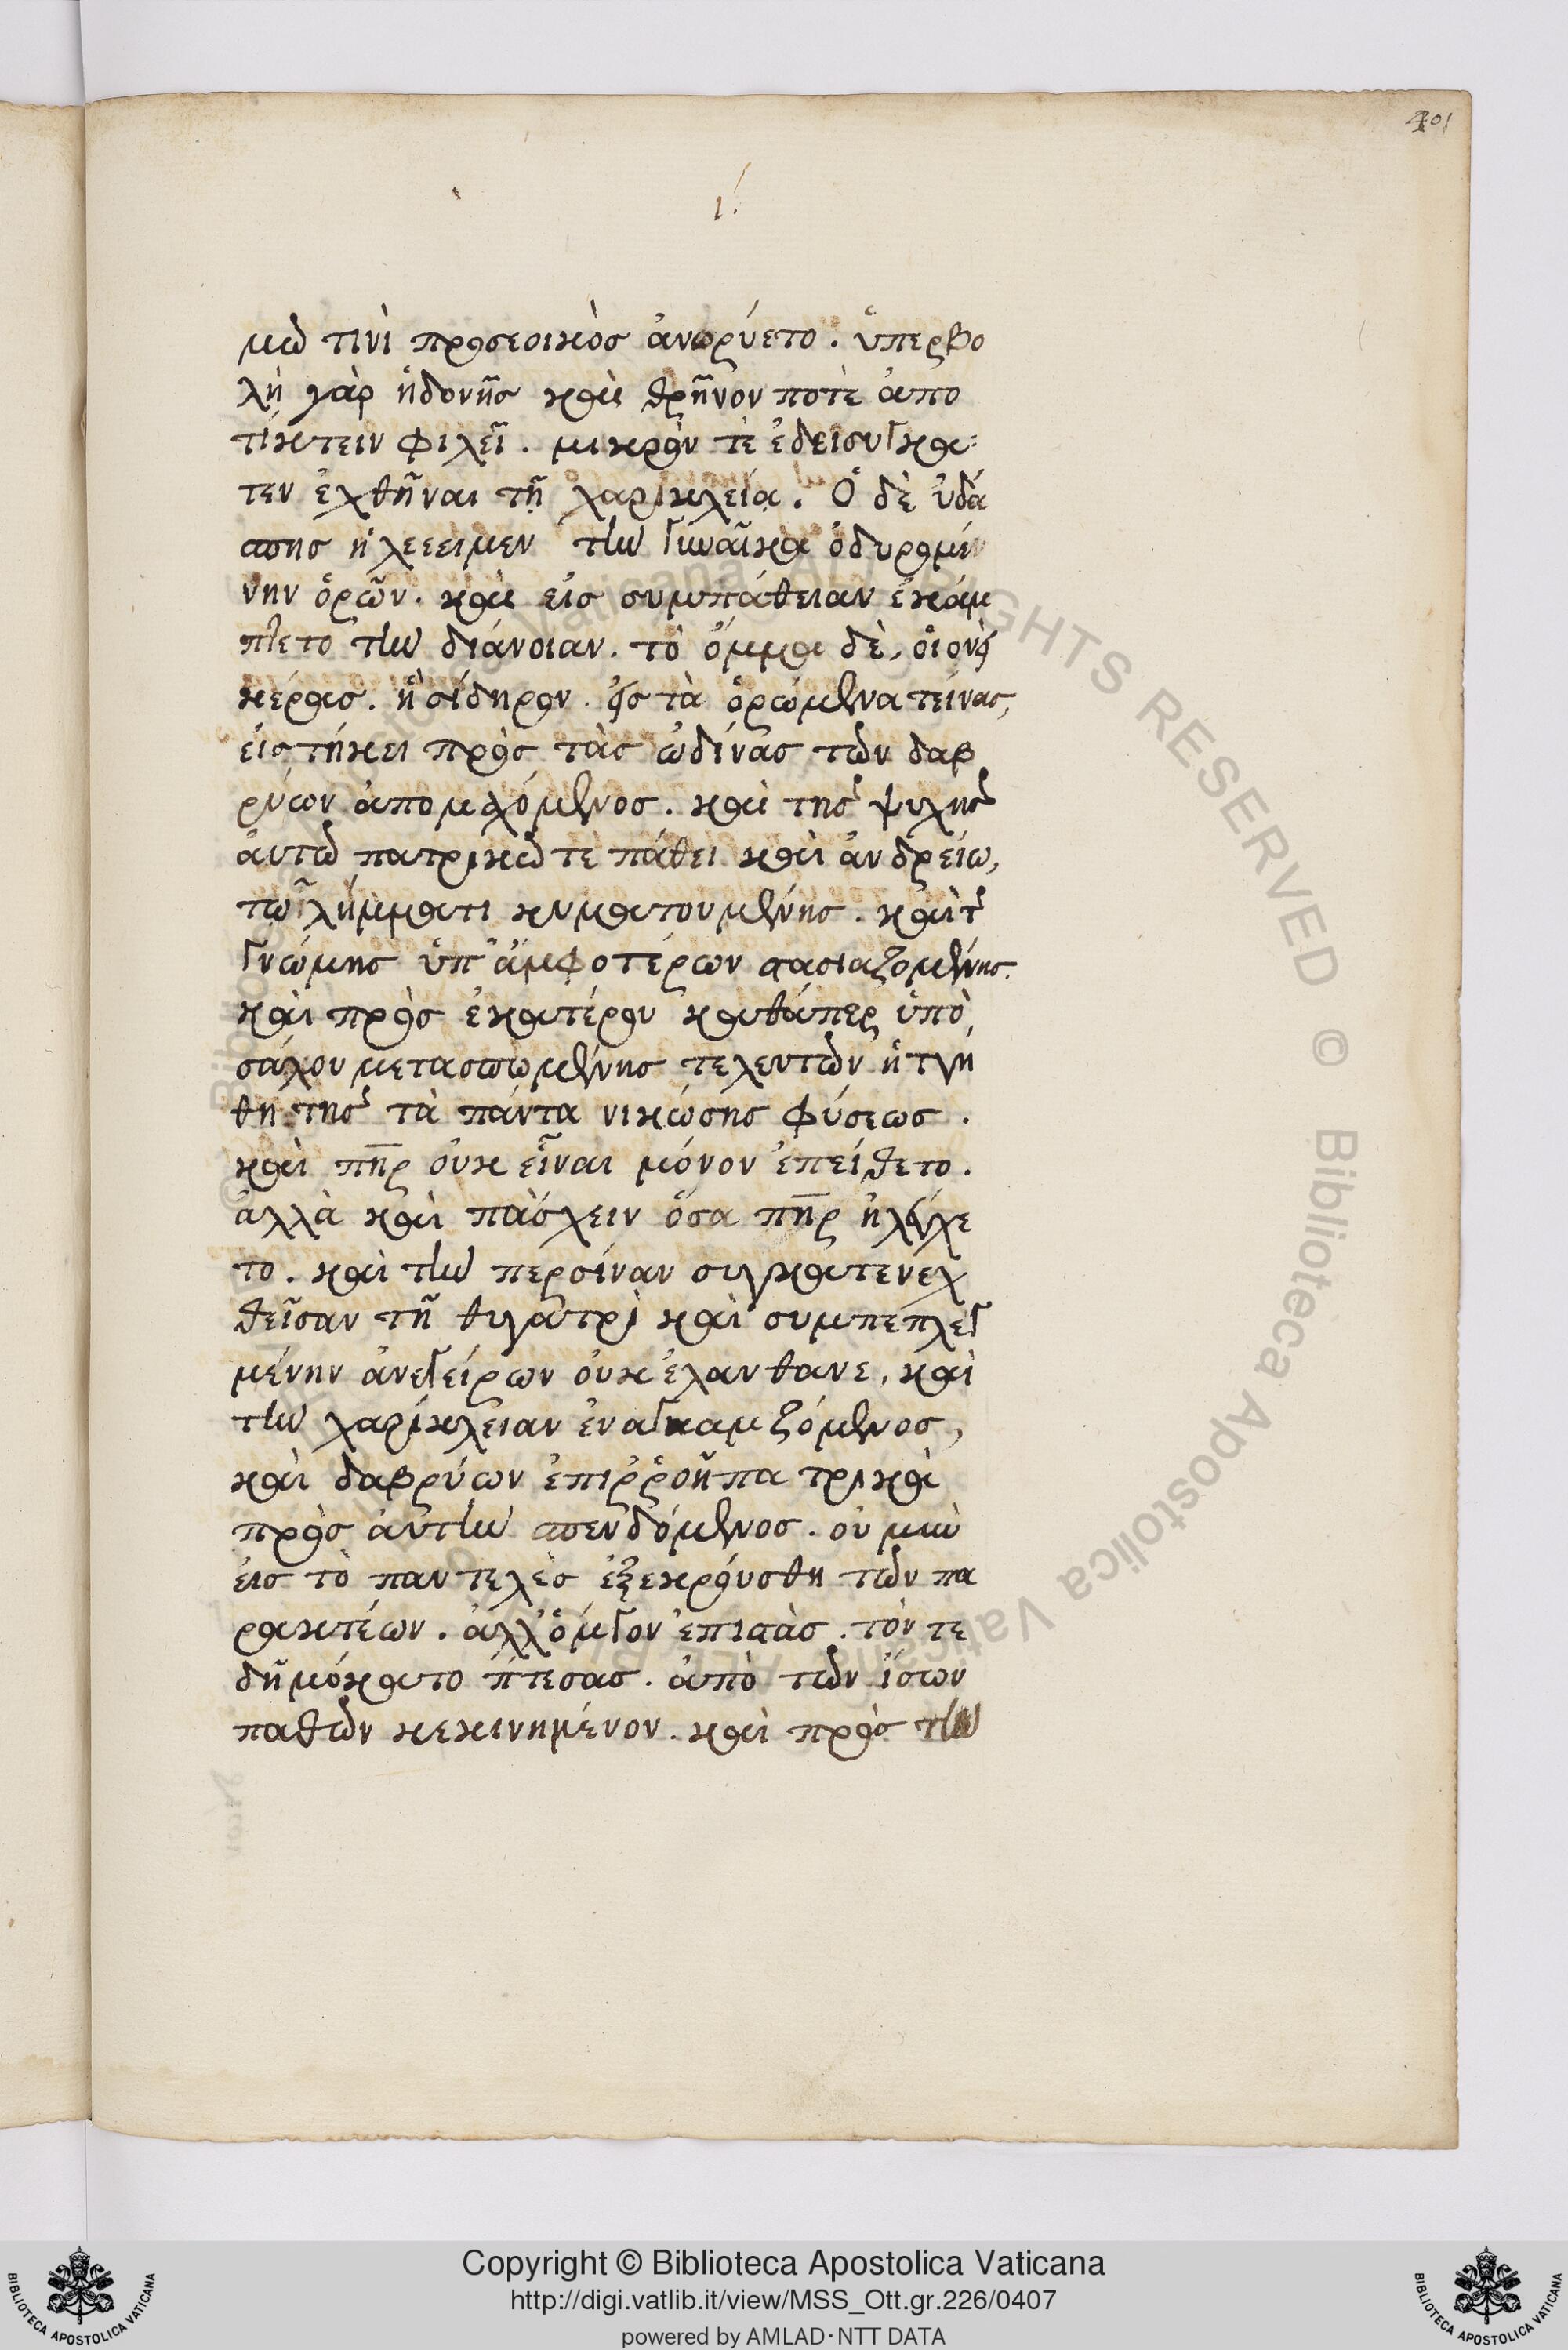 401
ι΄.
μῶ τινὶ προσεοικὸς ἀνωρύετο. ὑπερβο
λὴ γὰρ ἡδονῆς καὶ θρῆνον ποτὲ ἀπο
τίκτειν φιλεῖ. μικρὸν τὲ ἐδεῖσυγκα
τεν ἐχθῆναι τῇ χαρικλείᾳ. Ὁ δὲ ὑδά
σπης ἠλεεειμεν τὴν γυναῖκα ὀδυρομέν
νην ὁρῶν. καὶ εἰς συμπάθειαν ἐκάμ
πτετο τὴν διάνοιαν. τὸ ὄμμα δὲ, οἱονεὶ
κέρας. ἢ σίδηρον. εἰς τὰ ὁρώμενα τείνας,
εἱστήκει πρὸς τὰς ὠδίνας τῶν δακ
ρύων ἀπομαχόμενος. καὶ τῆς ψυχῆς
αὐτῶ πατρικῶ τὲ πάθει καὶ ἀνδρείω,
τῷ λήμματι κυματουμένης. καὶ τῆς
γνώμης ὑπ' ἀμφοτέρων στασιαζομένης.
καὶ πρὸς ἑκατέρου καθάπερ ὑπὸ
σάχου μετασπωμένης τελευτῶν ἡττή
θη τῆς τὰ πάντα νικώσης φύσεως.
καὶ πηρ οὐκ εἶναι μόνον ἐπείθετο.
ἀλλὰ καὶ πάσχειν ὅσα πηρ ἠλέγχε
το. καὶ τὴν περσίναν συγκατενεχ
θεῖσαν τῆ θυγατρὶ καὶ συμπεπλεγ
μένην ἀνεγείρων οὐκ ἐλανθανε, καὶ
τὴν χαρίκλειαν ἐναγκαμζόμενος,
καὶ δακρύων ἐπιῤῥοῆ πατρικὰ
πρὸς αὐτὴν σπενδόμενος. οὐ μὴν
εἰς τὸ παντελὲς ἐξεκρούσθη τῶν πα
ρακτέων. ἀλλ' ὀλίγον ἐπιστὰς. τόν τε
δῆμόκατο πτεσας. ἀπὸ τῶν ἴσων
παθῶν κεκινημένον. καὶ πρὸς τὴν
Copyright © Biblioteca Apostolica Vaticana
http://digi.vatlib.it/view/MSS_Ott.gr.226/0407
powered by AMLAD·NTT DATA